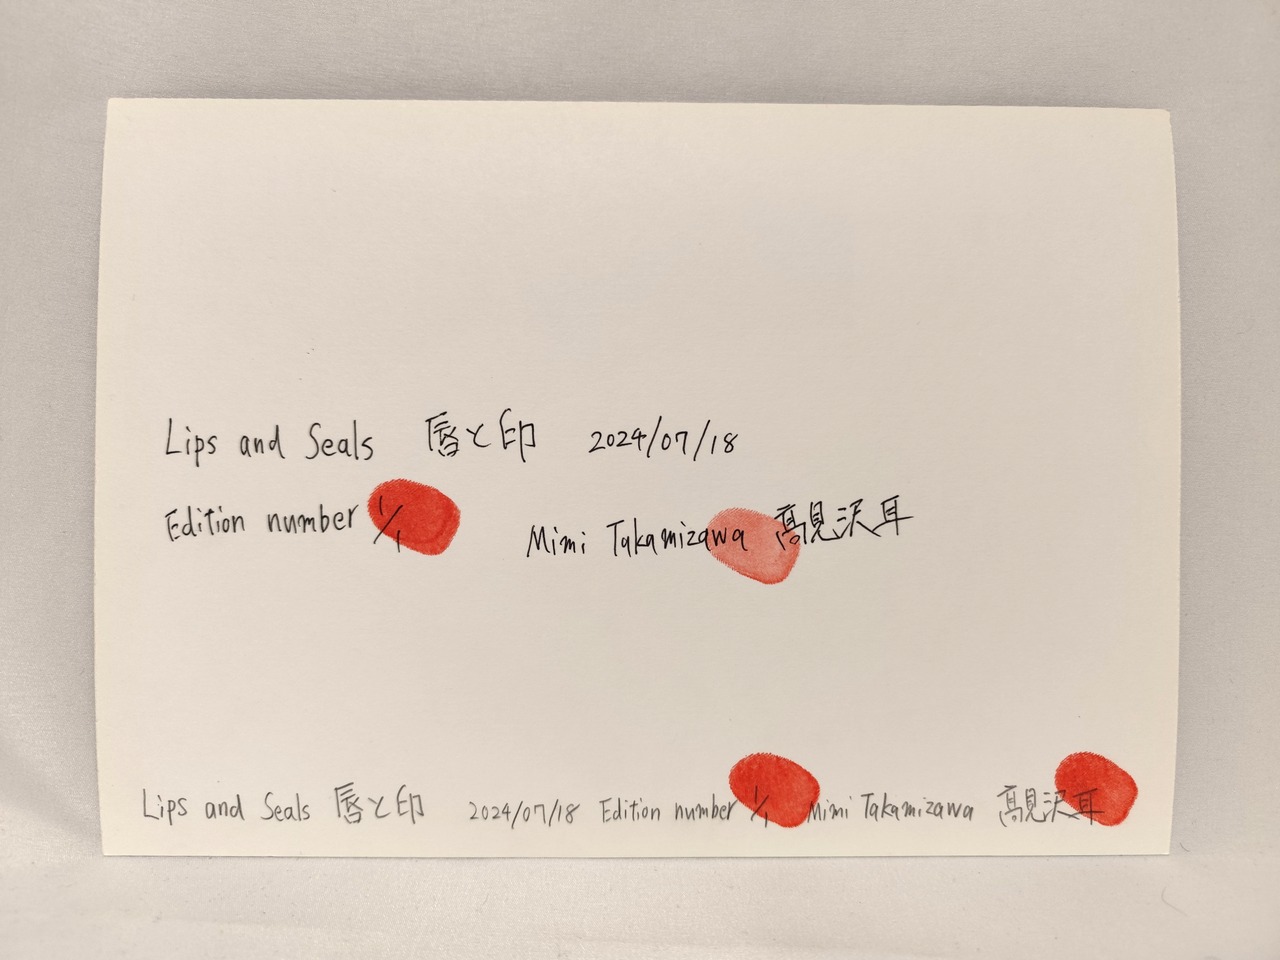 Lips and Seals 唇と印 2024/07/18
Edition number 1/1
Mimi Takamizawa 髙見沢耳
Lips and Seals 唇と印 2024/07/18 Edition number 1/1 Mimi Takamizawa 髙見沢耳